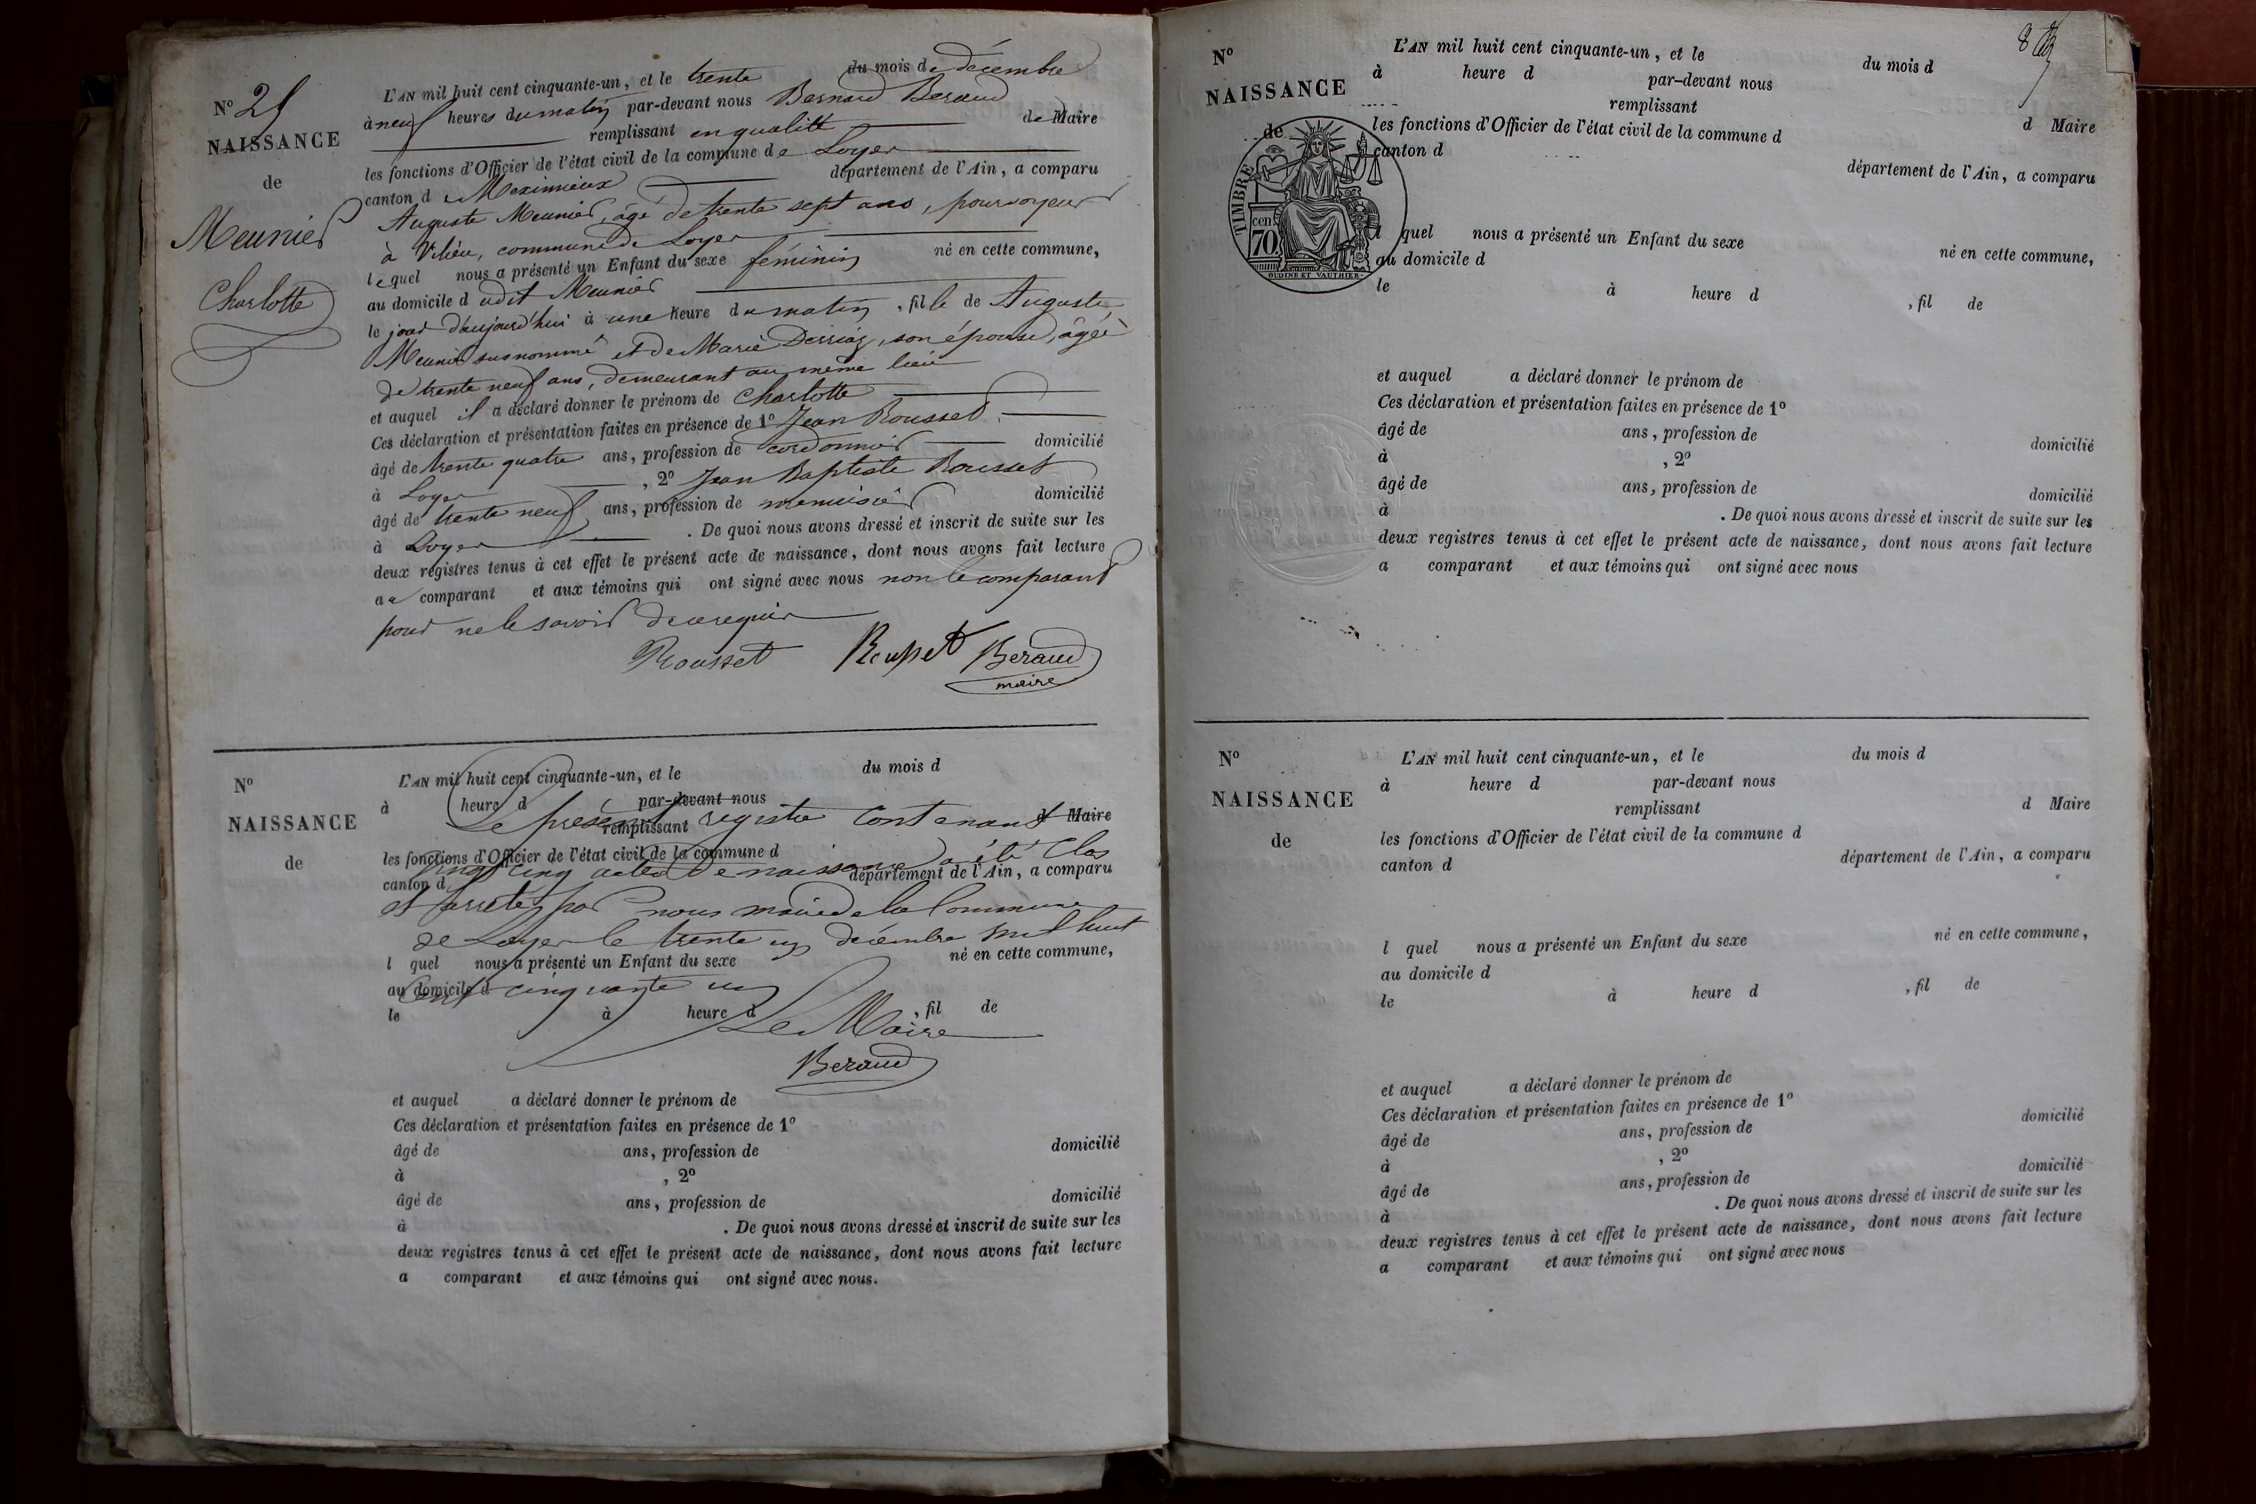 N° 25
NAISSANCE
de
Meunier
Charlotte
L'AN mil huit cent cinquante-un, et le trente du mois de décembre
à neuf heures du matin par-devant nous Bernard Beraud
remplissant en qualité de Maire
les fonctions d'Officier de l'état civil de la commune de Loyes
canton de Meximieux département de l'Ain, a comparu
Auguste Meunier, âgé de trente sept ans, pourvoyeur
à Vilieu, commune de Loyes
lequel nous a présenté un Enfant du sexe féminin né en cette commune,
au domicile dudit Meunier
le jour d'aujourd'hui à une heure du matin, fille de Auguste
Meunier susnommé et de Marie son épouse, âgée
de trente neuf ans, demeurant au même lieu
et auquel il a déclaré donner le prénom de Charlotte
Ces déclaration et présentation faites en présence de 1° Jean Rousset
âgé de trente quatre ans, profession de cordonnier domicilié
à Loyes, 2° Jean Baptiste Rousset
âgé de trente neuf ans, profession de menuisier domicilié
à Loyes. De quoi nous avons dressé et inscrit de suite sur les
deux registres tenus à cet effet le présent acte de naissance, dont nous avons fait lecture
au comparant et aux témoins qui ont signé avec nous non le comparant
pour ne le savoir de ce requis
Rousset Rousset Beraud
maire
N°
NAISSANCE
de
L'AN mil huit cent cinquante-un, et le du mois d
à heure d par-devant nous
Le présent registre contenant
remplissant d Maire
les fonctions d'Officier de l'état civil de la commune d
vingt cinq actes de naissance a été clos
canton d département de l'Ain, a comparu
et arrêté par nous maire de la Commune
de Loyes le trente un décembre mil huit
l quel nous a présenté un Enfant du sexe né en cette commune,
au domicile d
cent cinquante un
le à heure d , fil de
Le Maire
Beraud
et auquel a déclaré donner le prénom de
Ces déclaration et présentation faites en présence de 1°
âgé de ans, profession de domicilié
à , 2°
âgé de ans, profession de domicilié
à . De quoi nous avons dressé et inscrit de suite sur les
deux registres tenus à cet effet le présent acte de naissance, dont nous avons fait lecture
a comparant et aux témoins qui ont signé avec nous.
8
N°
NAISSANCE
de
TIMBRE
70 cen
OUDINÉ ET VAUTHIER
L'AN mil huit cent cinquante-un, et le du mois d
à heure d par-devant nous
remplissant d Maire
les fonctions d'Officier de l'état civil de la commune d
canton d département de l'Ain, a comparu
l quel nous a présenté un Enfant du sexe né en cette commune,
au domicile d
le à heure d , fil de
et auquel a déclaré donner le prénom de
Ces déclaration et présentation faites en présence de 1°
âgé de ans, profession de domicilié
à , 2°
âgé de ans, profession de domicilié
à . De quoi nous avons dressé et inscrit de suite sur les
deux registres tenus à cet effet le présent acte de naissance, dont nous avons fait lecture
a comparant et aux témoins qui ont signé avec nous
N°
NAISSANCE
de
L'AN mil huit cent cinquante-un, et le du mois d
à heure d par-devant nous
remplissant d Maire
les fonctions d'Officier de l'état civil de la commune d
canton d département de l'Ain, a comparu
l quel nous a présenté un Enfant du sexe né en cette commune,
au domicile d
le à heure d , fil de
et auquel a déclaré donner le prénom de
Ces déclaration et présentation faites en présence de 1°
âgé de ans, profession de domicilié
à , 2°
âgé de ans, profession de domicilié
à . De quoi nous avons dressé et inscrit de suite sur les
deux registres tenus à cet effet le présent acte de naissance, dont nous avons fait lecture
a comparant et aux témoins qui ont signé avec nous